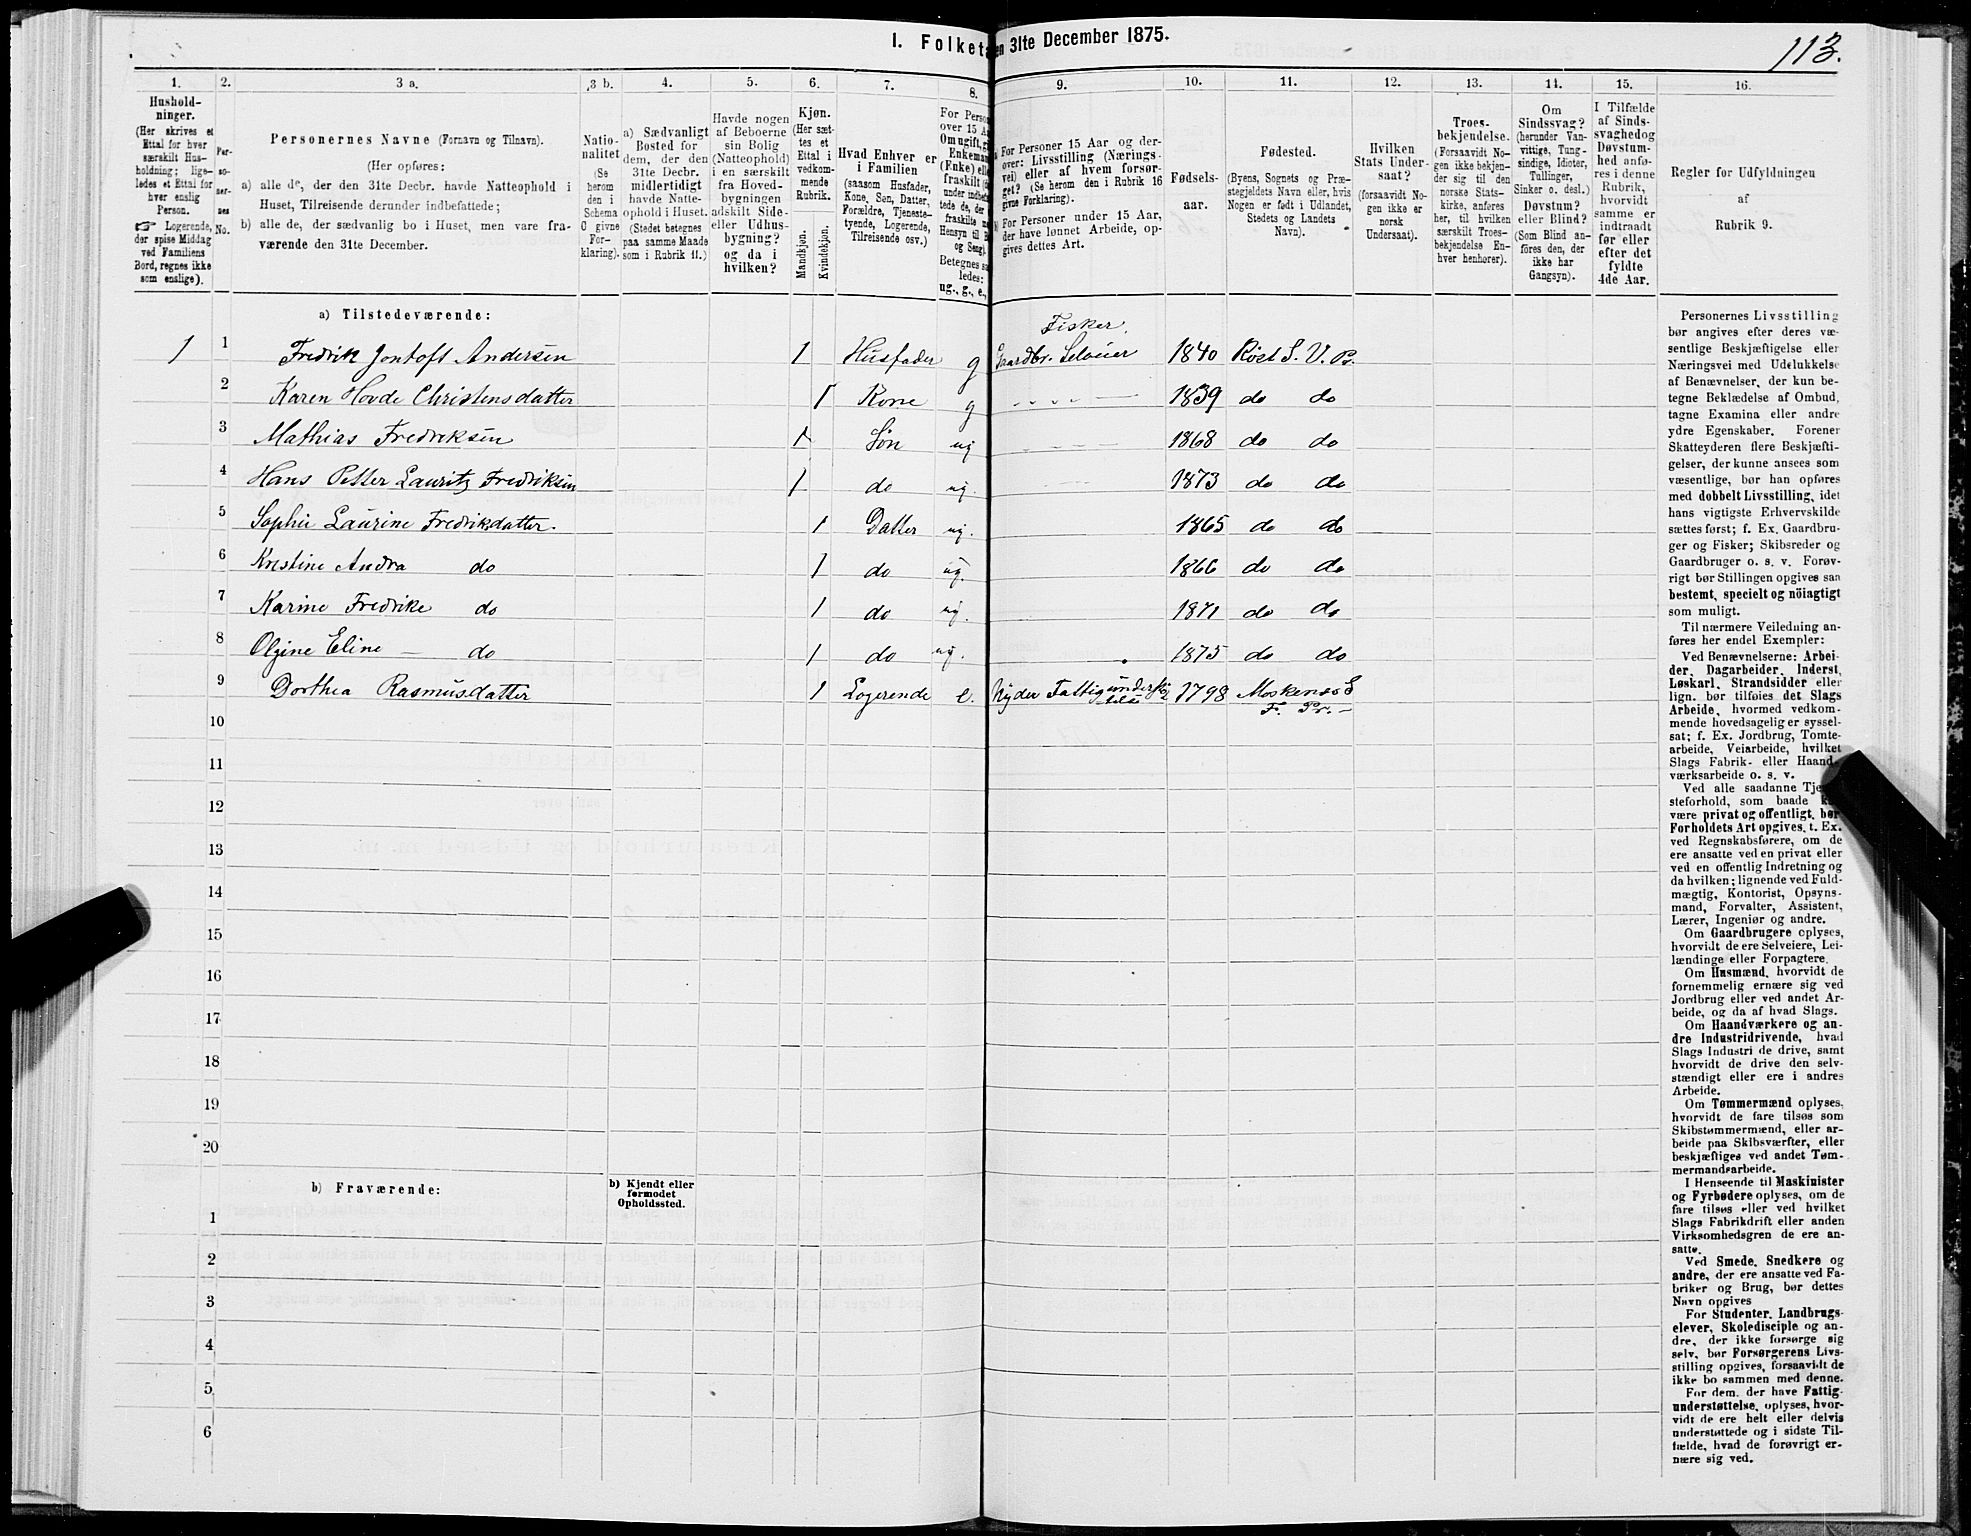 I. Folketa
en 31te December 1875.
113.
1.
2.
3 a.
3 b.
4.
5.
6.
7.
8.
9.
10.
11.
12.
13.
14.
15.
16.
Hushold-
ninger.
(Her skrives et
Ettal for hver
særskilt Hus-
holdning; lige-
ledes et Ettal for
hver enslig
Person.
☞ Logerende,
der spise Middag
ved Familiens
Bord, regnes ikke
som enslige).
Per-
so-
ner-
nes
No.
Personernes Navne (Fornavn og Tilnavn).
(Her opføres:
a) alle de, der den 31te Decbr. havde Natteophold i
Huset, Tilreisende derunder indbefattede;
b) alle de, der sædvanlig bo i Huset, men vare fra-
værende den 31te December.
Natio-
nalitet
(Se
herom
den i
Schema
O givne
For-
klaring).
a) Sædvanligt
Bosted for
dem, der den
31te Decbr.
midlertidigt
havde Natte-
ophold i Huset.
(Stedet betegnes
paa samme Maade
som i Rubrik 11.)
Havde nogen
af Beboerne
sin Bolig
(Natteophold)
i en særskilt
fra Hoved-
bygningen
adskilt Side-
eller Udhus-
bygning?
og da i
hvilken?
Kjøn.
(Her sæt-
tes et
Ettal i
vedkom-
mende
Rubrik.
Mandkjøn.
Kvindekjøn.
Hvad Enhver er
i Familien
(saasom Husfader,
Kone, Søn, Datter,
Forældre, Tjeneste-
tyende, Logerende,
Tilreisende osv.)
For Perso
over 15 A
Om ugift, gi
Enkeman
(Enke) elle
fraskilt (
under indbefa
tede de, der
fraskilte m
Hensyn til B
og Seng).
Betegnes sa
ledes:
ug., g., e.,
a) For Personer 15 Aar og der-
over: Livsstilling (Nærings-
vei) eller af hvem forsør-
get? (Se herom den i Rubrik 16
givne Forklaring).
b) For Personer under 15 Aar,
der have lønnet Arbeide, op-
gives dettes Art.
Fødsels-
aar.
Fødested.
(Byens, Sognets og Præ-
stegjeldets Navn eller, hvis
Nogen er født i Udlandet,
Stedets og Landets
Navn).
Hvilken
Stats Under-
saat?
(forsaavidt No-
gen ikke er
norsk
Undersaat).
Troes-
bekjendelse.
(Forsaavidt No-
gen ikke bekjen-
der sig til den
norske Stats-
kirke, anføres
her, til hvilken
særskilt Troes-
bekjendelse En-
hver henhører).
Om
Sindssvag?
(herunder Van-
vittige, Tung-
sindige, Idioter,
Tullinger,
Sinker o. desl.)
Døvstum?
eller Blind?
(Som Blind an-
føres den, der
ikke har
Gangsyn).
I Tilfælde
af Sinds-
svaghed og
Døvstum-
hed anfø-
res i denne
Rubrik,
hvorvidt
samme er
indtraadt
før eller
efter det
fyldte
4de Aar.
Regler for Udfyldningen
af
Rubrik 9.
a) Tilstedeværende:
1 1 Fredrik Jontoft Andersen 1 Husfader g Fisker. Gaardbr. Selveier 1840 Røst S. V. Pr.
2 Karen Hovde Christensdatter 1 Kone g 1839 do do
3 Mathias Fredriksen 1 Søn ug 1868 do do
4 Hans Petter Lauritz Fredriksen 1 do ug. 1873 do do
5 Sophie Laurine Fredriksdatter. 1 Datter ug. 1865 do do
6 Kristine Andra do 1 do ug. 1866 do do
7 Karine Fredrike do 1 do ug. 1871 do do
8 Olgine Eline — do 1 do ug. 1875 do do
9 Dorthea Rasmusdatter 1 Logerende e. Nyder Fattigunderstøttelse 1798 Moskenes S F. Pr. —
10
11
12
13
14
15
16
17
18
19
20
b) Fraværende:
b) Kjendt eller
formodet
Opholdssted.
1
2
3
4
5
6
Personernes Livsstilling
bør angives efter deres væ-
sentlige Beskjæftigelse eller
Næringsvei med Udelukkelse
af Benævnelser, der kun be-
tegne Beklædelse af Ombud,
tagne Examina eller andre
ydre Egenskaber. Forener
Skatteyderen flere Beskjæfti-
gelser, der kunne ansees som
væsentlige, bør han opføres
med dobbelt Livsstilling, idet
hans vigtigste Erhvervskilde
sættes først; f. Ex. Gaardbru-
ger og Fisker; Skibsreder og
Gaardbruger o. s. v. Forøv-
rigt bør Stillingen opgives saa
bestemt, specielt og nöiagtigt
som muligt.
Til nærmere Veiledning an-
føres her endel Exempler:
Ved Benævnelserne: Arbei-
der, Dagarbeider, Inderst,
Løskarl, Strandsidder eller
lign. bør tilføies det Slags
Arbeide, hvormed vedkom-
mende hovedsagelig er syssel-
sat; f. Ex. Jordbrug, Tomte-
arbeide, Veiarbeide, hvilket
Slags Fabrik- eller Haand-
værksarbeide o. s. v.
Ved alle saadanne Tje
steforhold, som baade k
være privat og offentligt, bør
Forholdets Art opgives, t. Ex.
ved Regnskabsførere, om de
ere ansatte ved en privat eller
ved en offentlig Indretning og
da hvilken; lignende ved Fuld-
mægtig, Kontorist, Opsyns-
mand, Forvalter, Assistent,
Lærer, Ingeniør og andre.
Om Gaardbrugere oplyses,
hvorvidt de ere Selveiere, Lei-
lændinge eller Forpagtere.
Om Husmænd, hvorvidt de
fornemmelig ernære sig ved
Jordbrug eller ved andet Ar-
beide, og da af hvad Slags.
Om Haandværkere og an-
dre Industridrivende, hvad
Slags Industri de drive, samt
hvorvidt de drive den selv-
stændigt eller ere i andres
Arbeide.
Om Tømmermænd oplyses,
hvorvidt de fare tilsøs som
Skibstømmermænd, eller ar-
beide paa Skibsværfter, eller
beskjæftiges ved andet Tøm-
mermandsarbeide.
I Henseende til Maskinister
og Fyrbødere oplyses, om de
fare tilsøs eller ved hvilket
Slags Fabrikdrift eller anden
Virksomhedsgren de ere an-
satte.
Ved Smede, Snedkere og
andre, der ere ansatte ved Fa-
briker og Brug, bør dettes
Navn opgives
For Studenter, Landbrugs-
elever, Skoledisciple og an-
dre, der ikke forsørge sig
selv, bør Forsørgerens Livs-
stilling opgives, forsaavidt de
ikke bo sammen med denne.
For dem, der have Fattig-
understøttelse, oplyses, hvor-
vidt de ere helt eller delvis
understøttede og i sidste Til-
fælde, hvad de forøvrigt er-
nære sig ved.